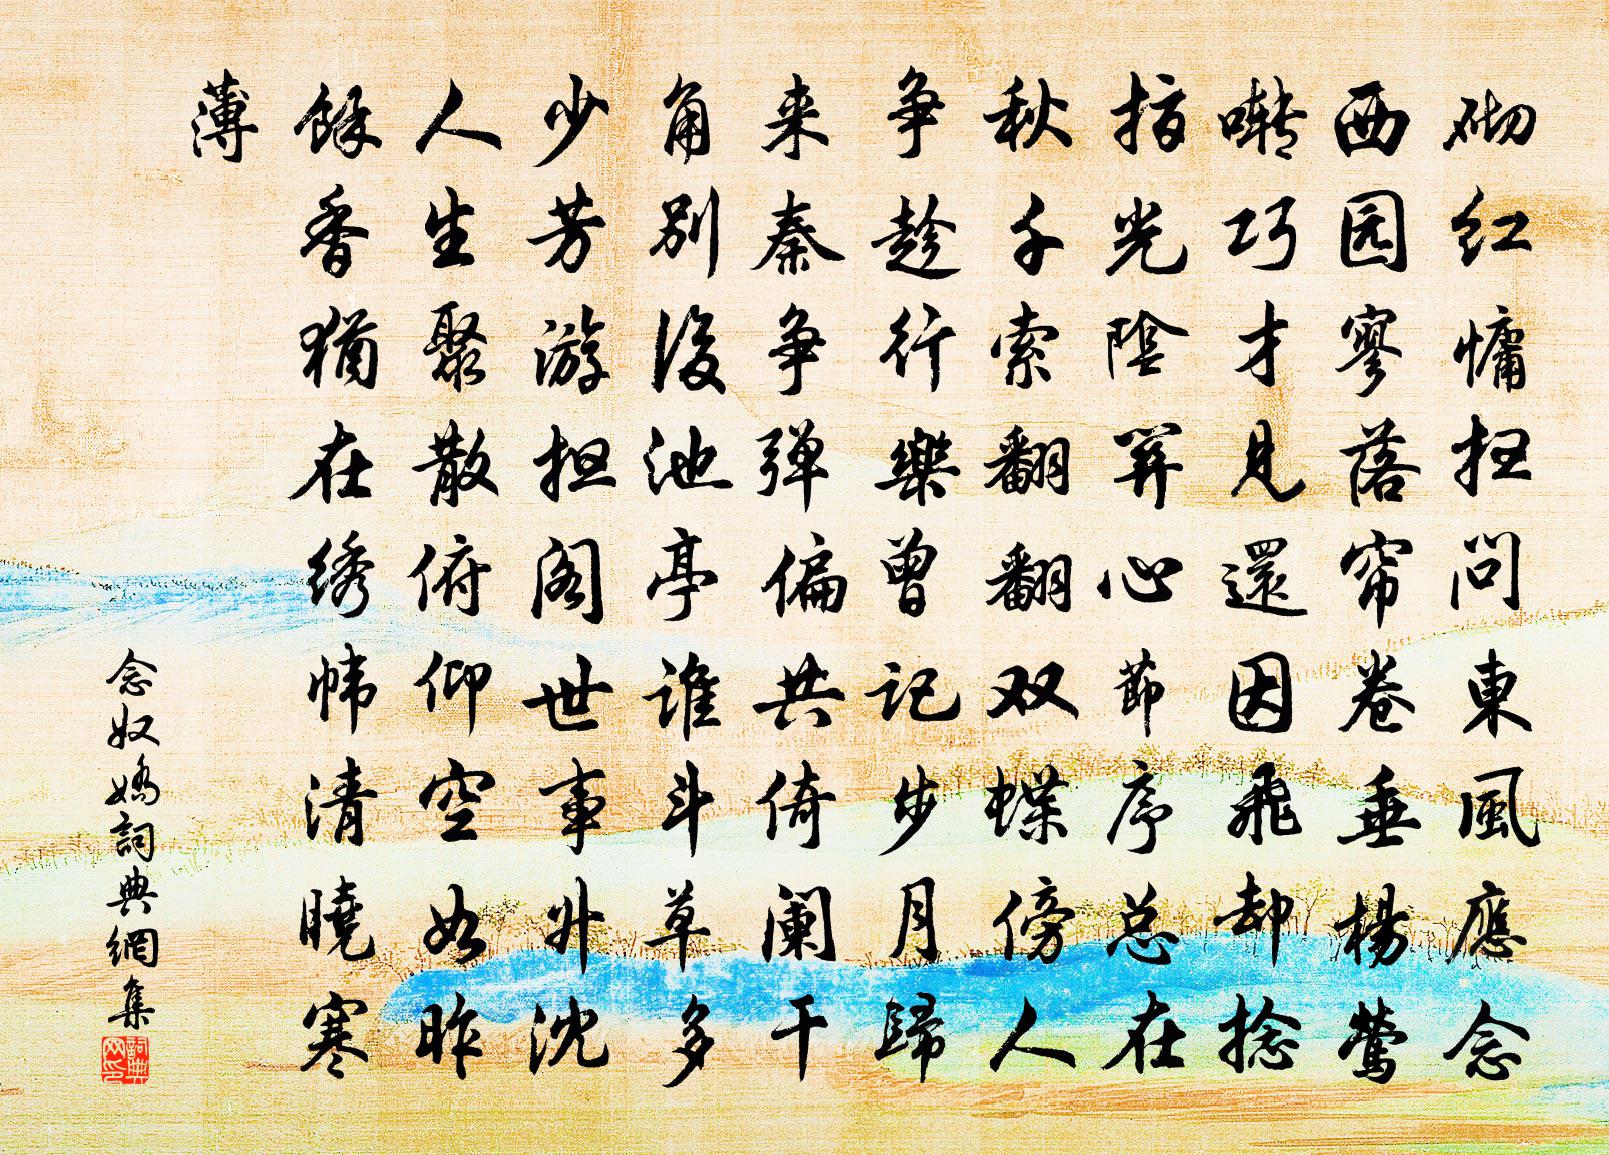 砌红慵扫问東風應念
西园寥落帘卷垂楊鶯
啭巧才見還因飛却捻
指光陰關心節序总在
秋千索翻翻双蝶傍人
争趁行樂曾记步月歸
来秦争弹偏共倚阑干
角别後池亭谁斗草多
少芳游担阁世事升沈
人生聚散俯仰空如昨
餘香猶在绣帏清曉寒
薄
念奴嬌詞典網集
詞典网印